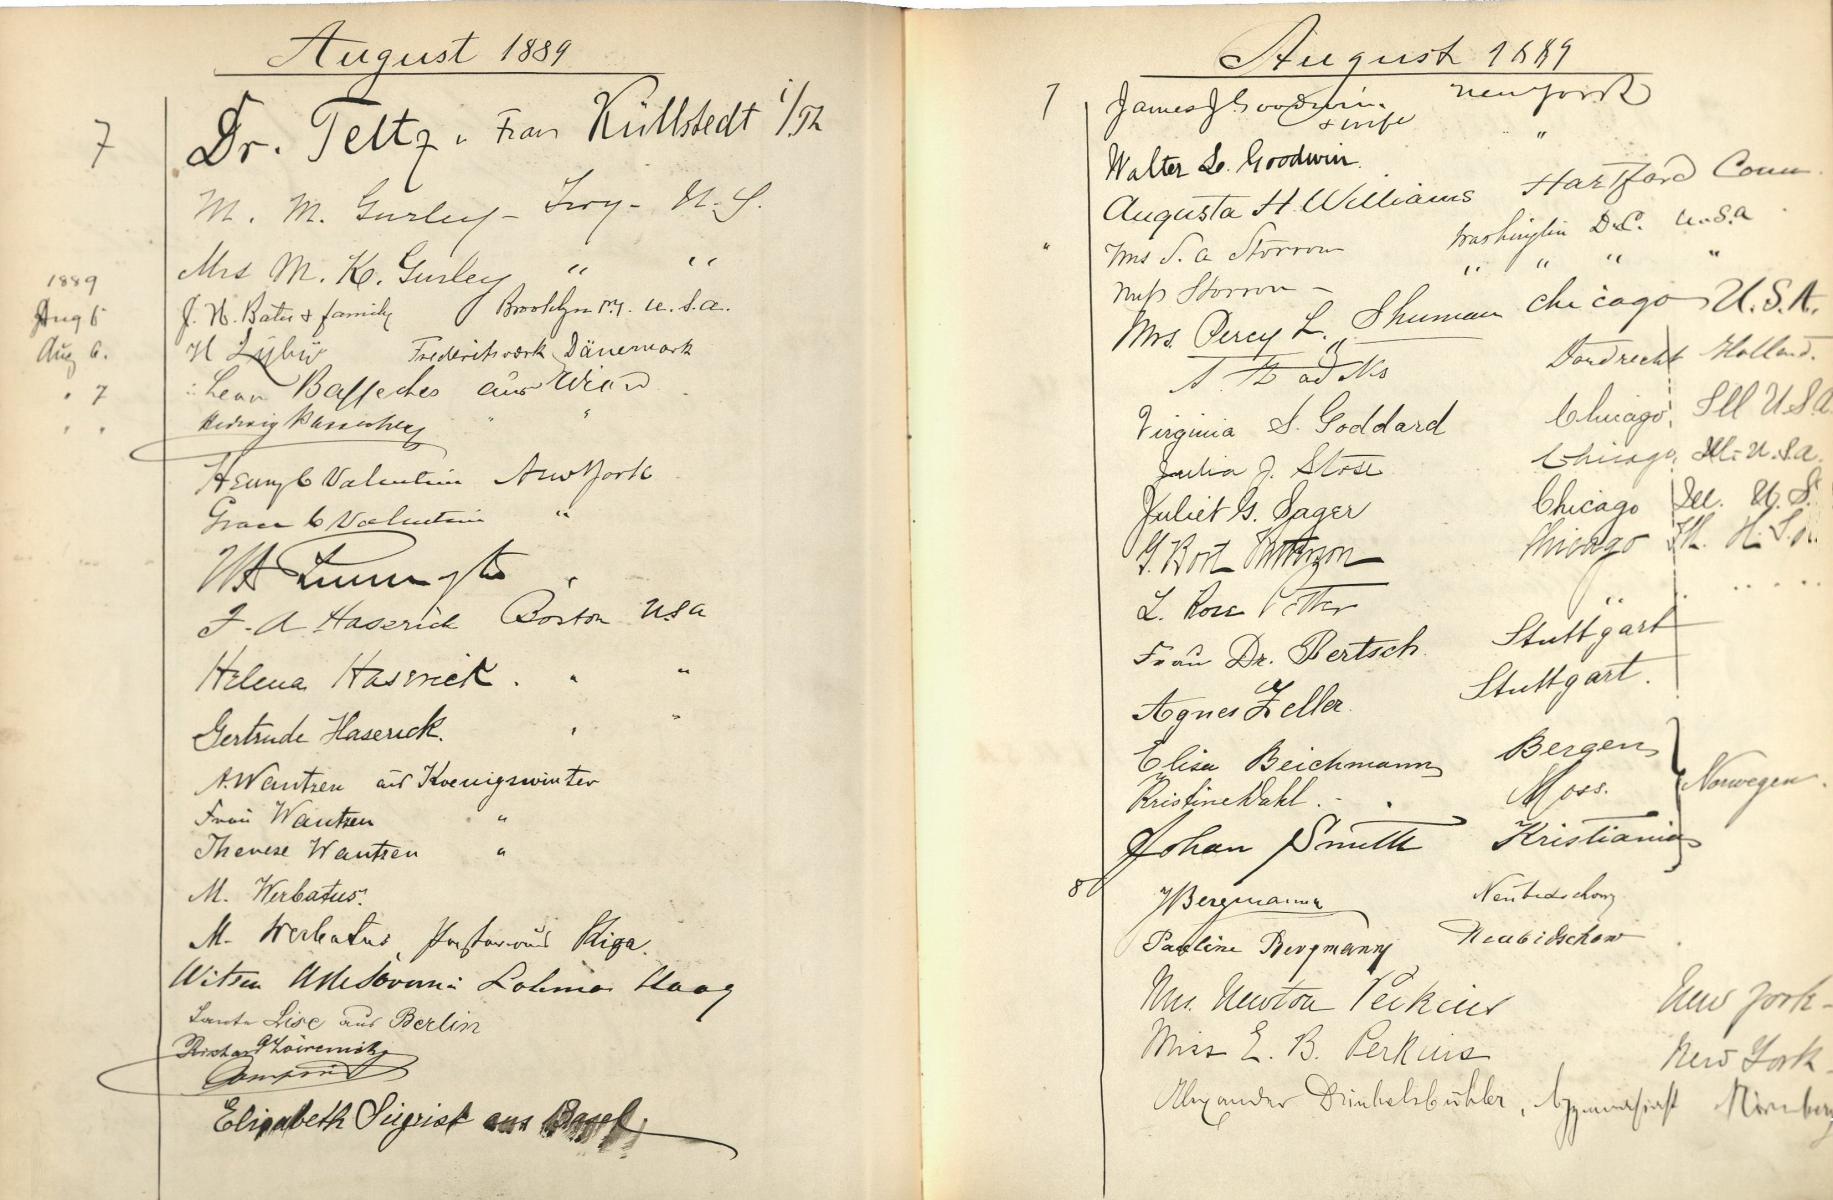 August 1889
7 Dr. Teltz u. Frau Küllstedt i/Th
M. M. Gurley - Troy - N. Y.
Mrs M. K. Gurley " "
1889
Aug 5 J. H. Bates & family Brooklyn N.Y. U.S.A.
Aug 6. H Frederiksværk Dänemark
" 7 Leon Basseches aus Wien
" " Hedwig " "
Henry C Valentine New York
Grace C Valentine "
F. A. Haserick Boston USA
Helena Haserick. " "
Gertrude Haserick. " "
A. Wantzen aus Koenigswinter
Frau Wantzen "
Therese Wantzen "
M. Werbatus.
M. Werbatus, Pastor aus Riga.
Witsen Lohman Haag
Tante Lise aus Berlin
Richard
Elisabeth Siegrist aus Basel
August 1889
7 James J Goodwin. New York
& wife
Walter L. Goodwin. "
Augusta H. Williams Hartford Conn.
" Mrs S. A Storrow Washington D.C. U.S.A
Miss Storrow - " " " "
Mrs. Percy L. Shuman Chicago U.S.A.
Dordrecht Holland.
Virginia S. Goddard Chicago, Ill U.S.A.
Julia J. Stose Chicago, Ill. U.S.A.
Juliet G. Sager Chicago Ill. U.S.
G. Chicago Ill.
L. Rose "
Frau Dr. Bertsch. Stuttgart
Agnes Zeller. Stuttgart.
Elisa Beichmann Bergen
Kristine Dahl. Moss. Norwegen.
Johan Smith Kristiania
8 Bergmann
Pauline Bergmann Neubidschow
Mrs. Newton Perkins New York -
Miss E. B. Perkins New York -
Alexander Dinkelsbühler, Nürnberg